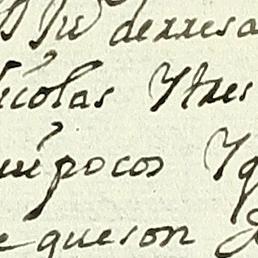 derresa
icolas Ytres
mui pocos Yq
e queson